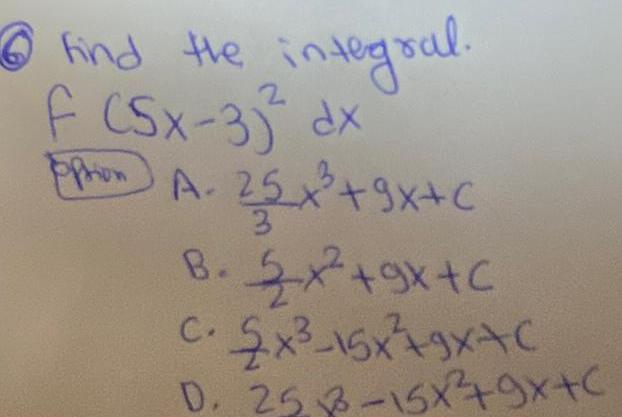 6 Find the integral.
∫ (5x-3)² dx
option A. 25/3 x³+9x+C
B. 5/2 x²+9x+C
C. 5/2 x³-15x²+9x+C
D. 25 x³-15x²+9x+C